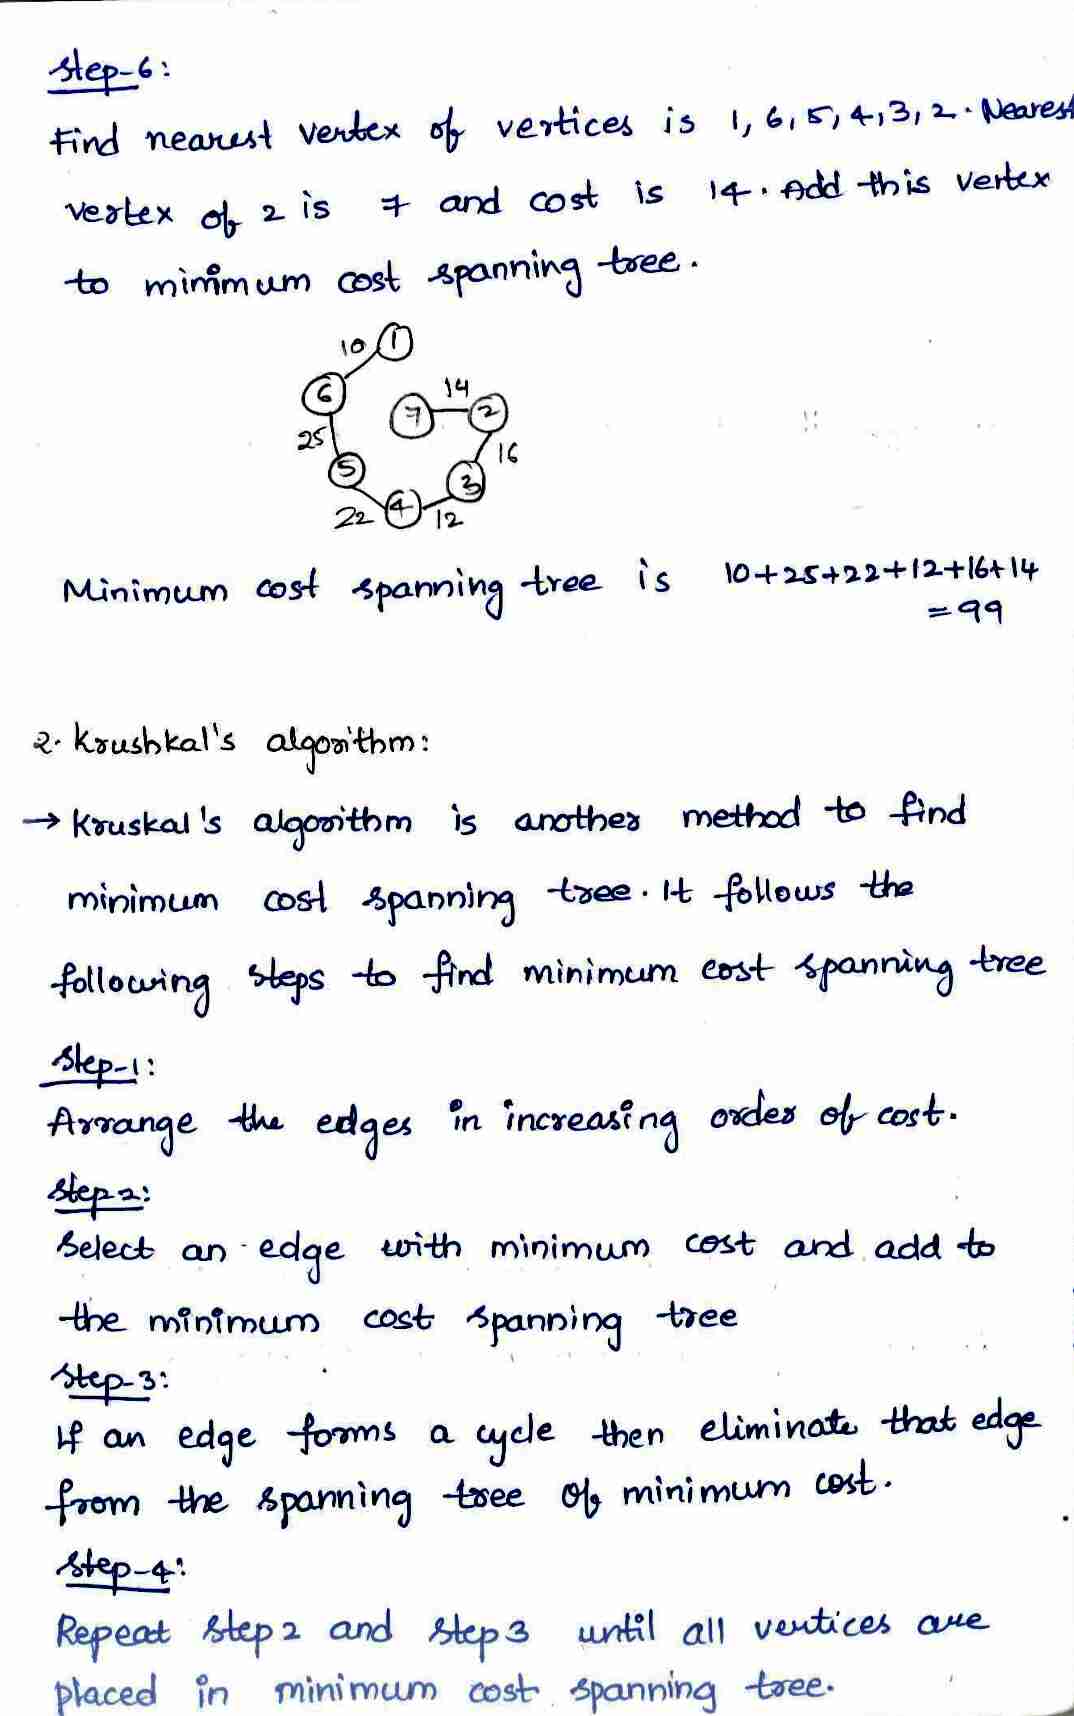 Step-6:
Find nearest vertex of vertices is 1, 6, 5, 4, 3, 2. Nearest
vertex of 2 is 7 and cost is 14. Add this vertex
to minimum cost spanning tree.
10 1
6 14
7 2
25 16
5 3
4
22 12
Minimum cost spanning tree is 10+25+22+12+16+14
=99
2. Krushkal's algorithm:
→ Kruskal's algorithm is another method to find
minimum cost spanning tree. It follows the
following steps to find minimum cost spanning tree
Step-1:
Arrange the edges in increasing order of cost.
Step 2:
Select an edge with minimum cost and add to
the minimum cost spanning tree
Step-3:
If an edge forms a cycle then eliminate that edge
from the spanning tree of minimum cost.
Step-4:
Repeat step 2 and step 3 until all vertices are
placed in minimum cost spanning tree.